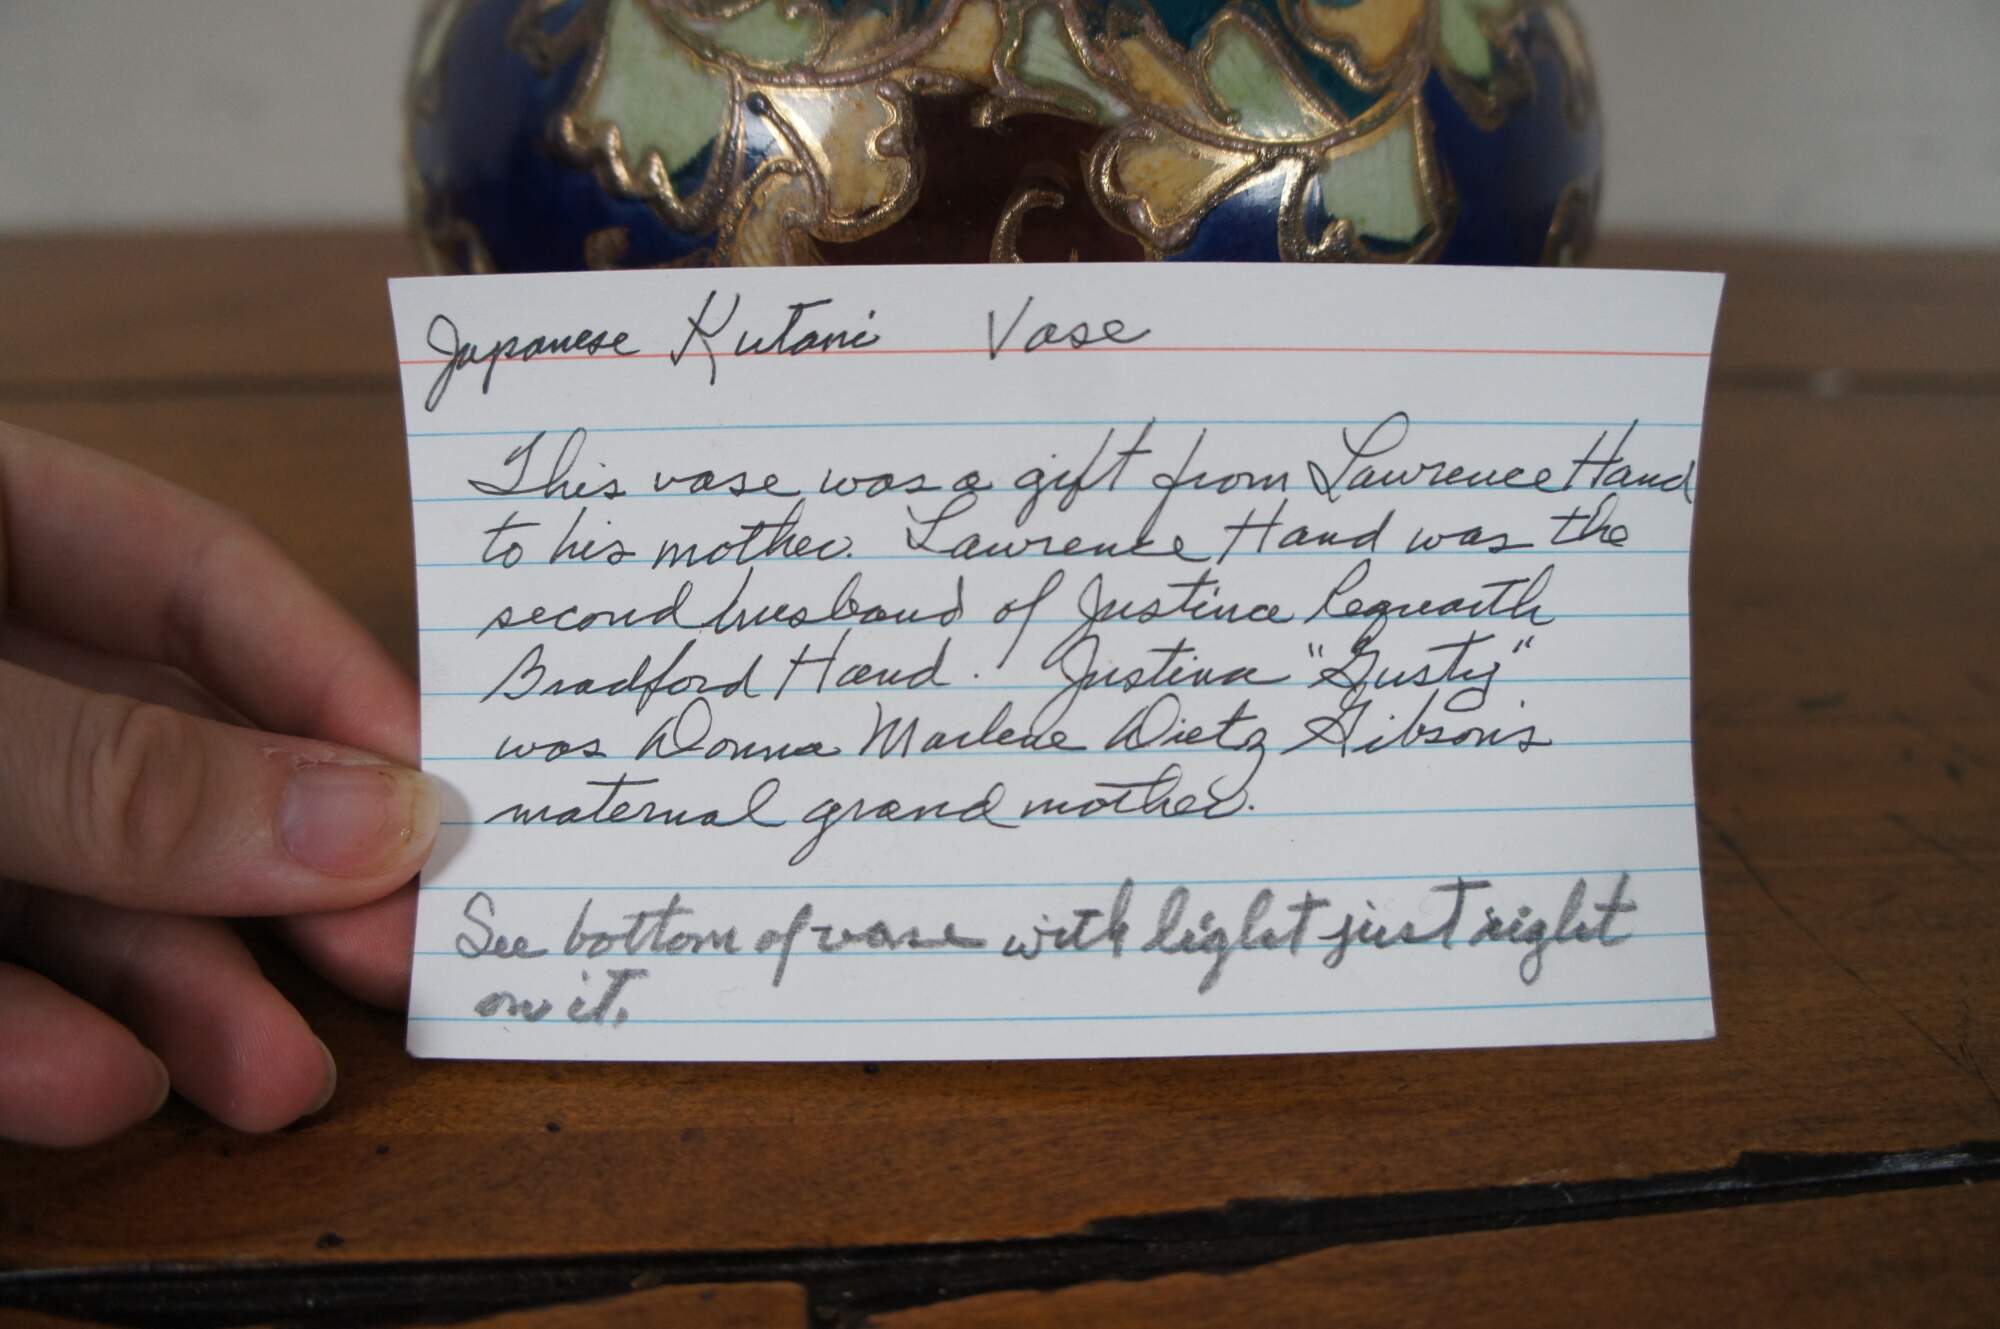 Japanese Kutani Vase
This vase was a gift from Lawrence Hand
to his mother. Lawrence Hand was the
second husband of Justina
Bradford Hand. Justina "Gusty"
was Donna Marlene Dietz Gibson's
maternal grand mother.
See bottom of vase with light just right
on it.